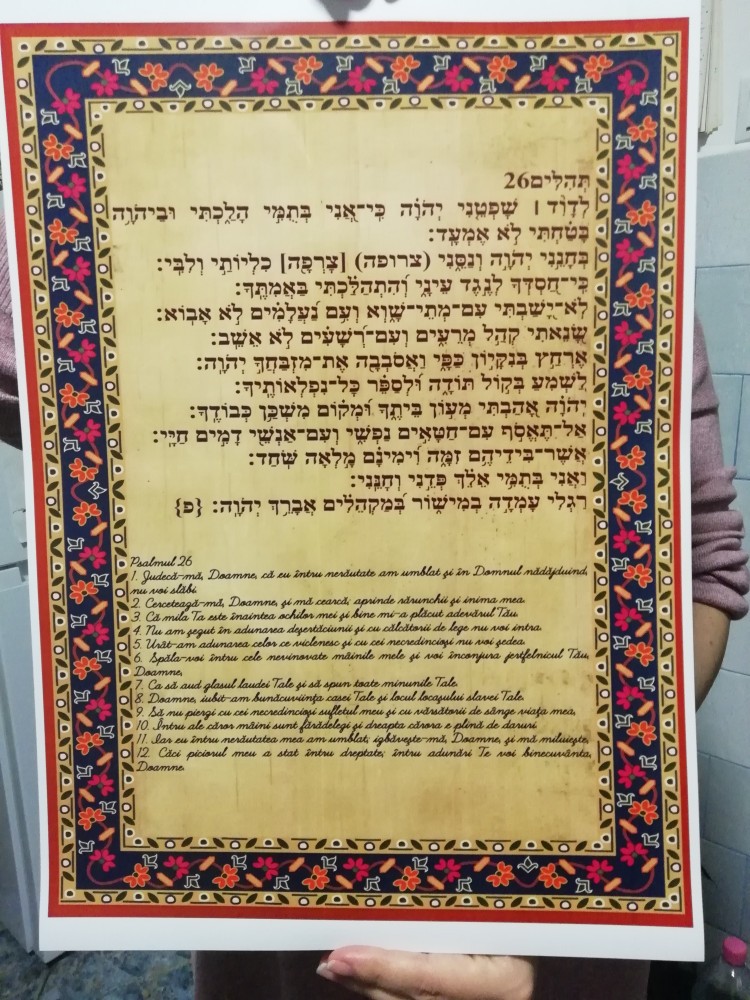 תהלים26
לְדָוִ֨ד ׀ שָׁפְטֵ֤נִי יְהֹוָ֗ה כִּֽי־אֲ֭נִי בְּתֻמִּ֣י הָלַ֑כְתִּי וּבַיהֹוָ֥ה
בָּ֝טַ֗חְתִּי לֹ֣א אֶמְעָֽד׃
בְּחָנֵ֣נִי יְהֹוָ֣ה וְנַסֵּ֑נִי (צרופה) [צׇרְפָ֖ה] כִלְיוֹתַ֣י וְלִבִּֽי׃
כִּֽי־חַ֭סְדְּךָ לְנֶ֣גֶד עֵינָ֑י וְ֝הִתְהַלַּ֗כְתִּי בַּאֲמִתֶּֽךָ׃
לֹא־יָ֭שַׁבְתִּי עִם־מְתֵי־שָׁ֑וְא וְעִ֥ם נַ֝עֲלָמִ֗ים לֹ֣א אָבֽוֹא׃
שָׂ֭נֵאתִי קְהַ֣ל מְרֵעִ֑ים וְעִם־רְ֝שָׁעִ֗ים לֹ֣א אֵשֵֽׁב׃
אֶרְחַ֣ץ בְּנִקָּי֣וֹן כַּפָּ֑י וַאֲסֹבְבָ֖ה אֶת־מִזְבַּחֲךָ֣ יְהֹוָֽה׃
לַ֭שְׁמִעַ בְּק֣וֹל תּוֹדָ֑ה וּ֝לְסַפֵּ֗ר כׇּל־נִפְלְאוֹתֶֽיךָ׃
יְֽהֹוָ֗ה אָ֭הַבְתִּי מְע֣וֹן בֵּיתֶ֑ךָ וּ֝מְק֗וֹם מִשְׁכַּ֥ן כְּבוֹדֶֽךָ׃
אַל־תֶּאֱסֹ֣ף עִם־חַטָּאִ֣ים נַפְשִׁ֑י וְעִם־אַנְשֵׁ֖י דָמִ֣ים חַיָּֽי׃
אֲשֶׁר־בִּידֵיהֶ֥ם זִמָּ֑ה וִ֝ימִינָ֗ם מָ֣לְאָה שֹּֽׁחַד׃
וַ֭אֲנִי בְּתֻמִּ֥י אֵלֵ֗ךְ פְּדֵ֣נִי וְחׇנֵּֽנִי׃
רַ֭גְלִי עָמְדָ֣ה בְמִישׁ֑וֹר בְּ֝מַקְהֵלִ֗ים אֲבָרֵ֥ךְ יְהֹוָֽה׃ {פ}
Psalmul 26
1. Judecă-mă, Doamne, că eu întru nerăutate am umblat și în Domnul nădăjduind,
nu voi slăbi.
2. Cercetează-mă, Doamne, și mă cearcă, aprinde rărunchii și inima mea.
3. Că mila Ta este înaintea ochilor mei și bine mi-a plăcut adevărul Tău.
4. Nu am șezut în adunarea deșertăciunii și cu călcătorii de lege nu voi intra.
5. Urât-am adunarea celor ce viclenesc și cu cei necredincioși nu voi ședea.
6. Spăla-voi întru cele nevinovate mâinile mele și voi înconjura jertfelnicul Tău,
Doamne,
7. Ca să aud glasul laudei Tale și să spun toate minunile Tale.
8. Doamne, iubit-am bunăcuviința casei Tale și locul locașului slavei Tale.
9. Să nu pierzi cu cei necredincioși sufletul meu și cu vărsătorii de sânge viața mea,
10. Întru ale căror mâini sunt fărădelegi și dreapta cărora e plină de daruri.
11. Iar eu întru nerăutatea mea am umblat; izbăvește-mă, Doamne, și mă miluiește.
12. Căci piciorul meu a stat întru dreptate; întru adunări Te voi binecuvânta,
Doamne.